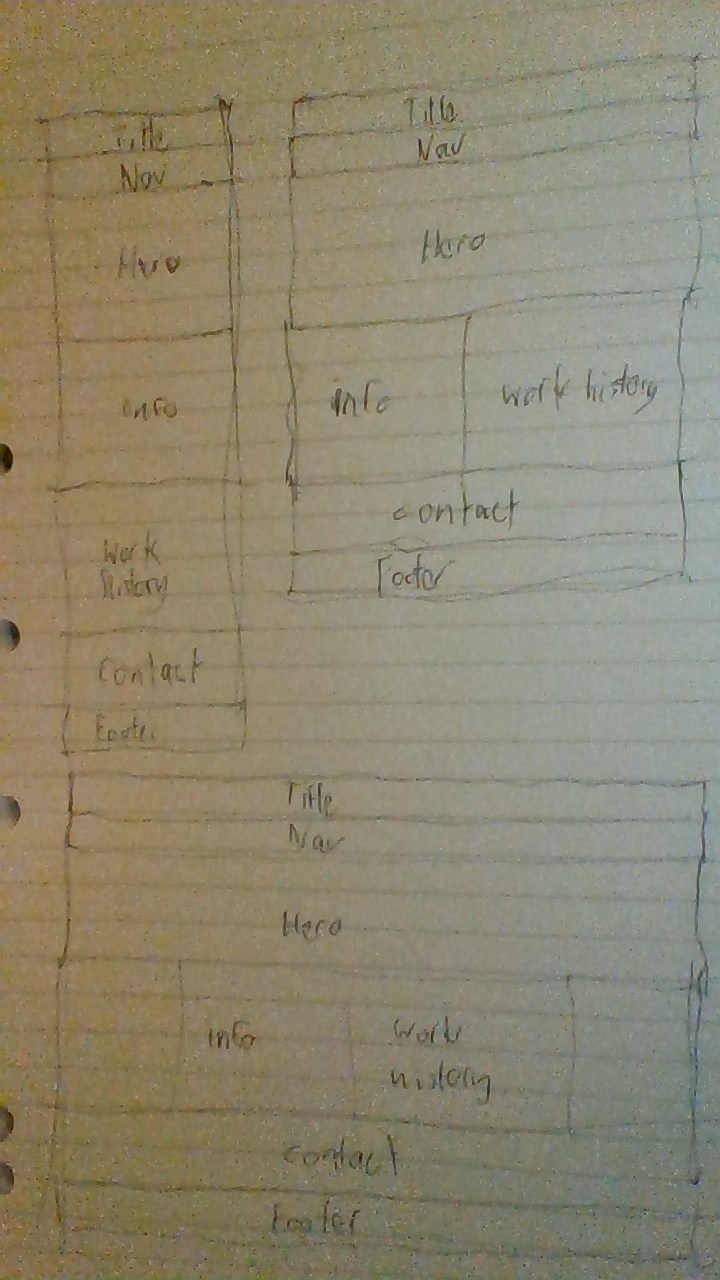 Title
Nav
Hero
info
work
history
contact
Footer
Title
Nav
Hero
info
work history
contact
Footer
Title
Nav
Hero
info
work
history
contact
Footer